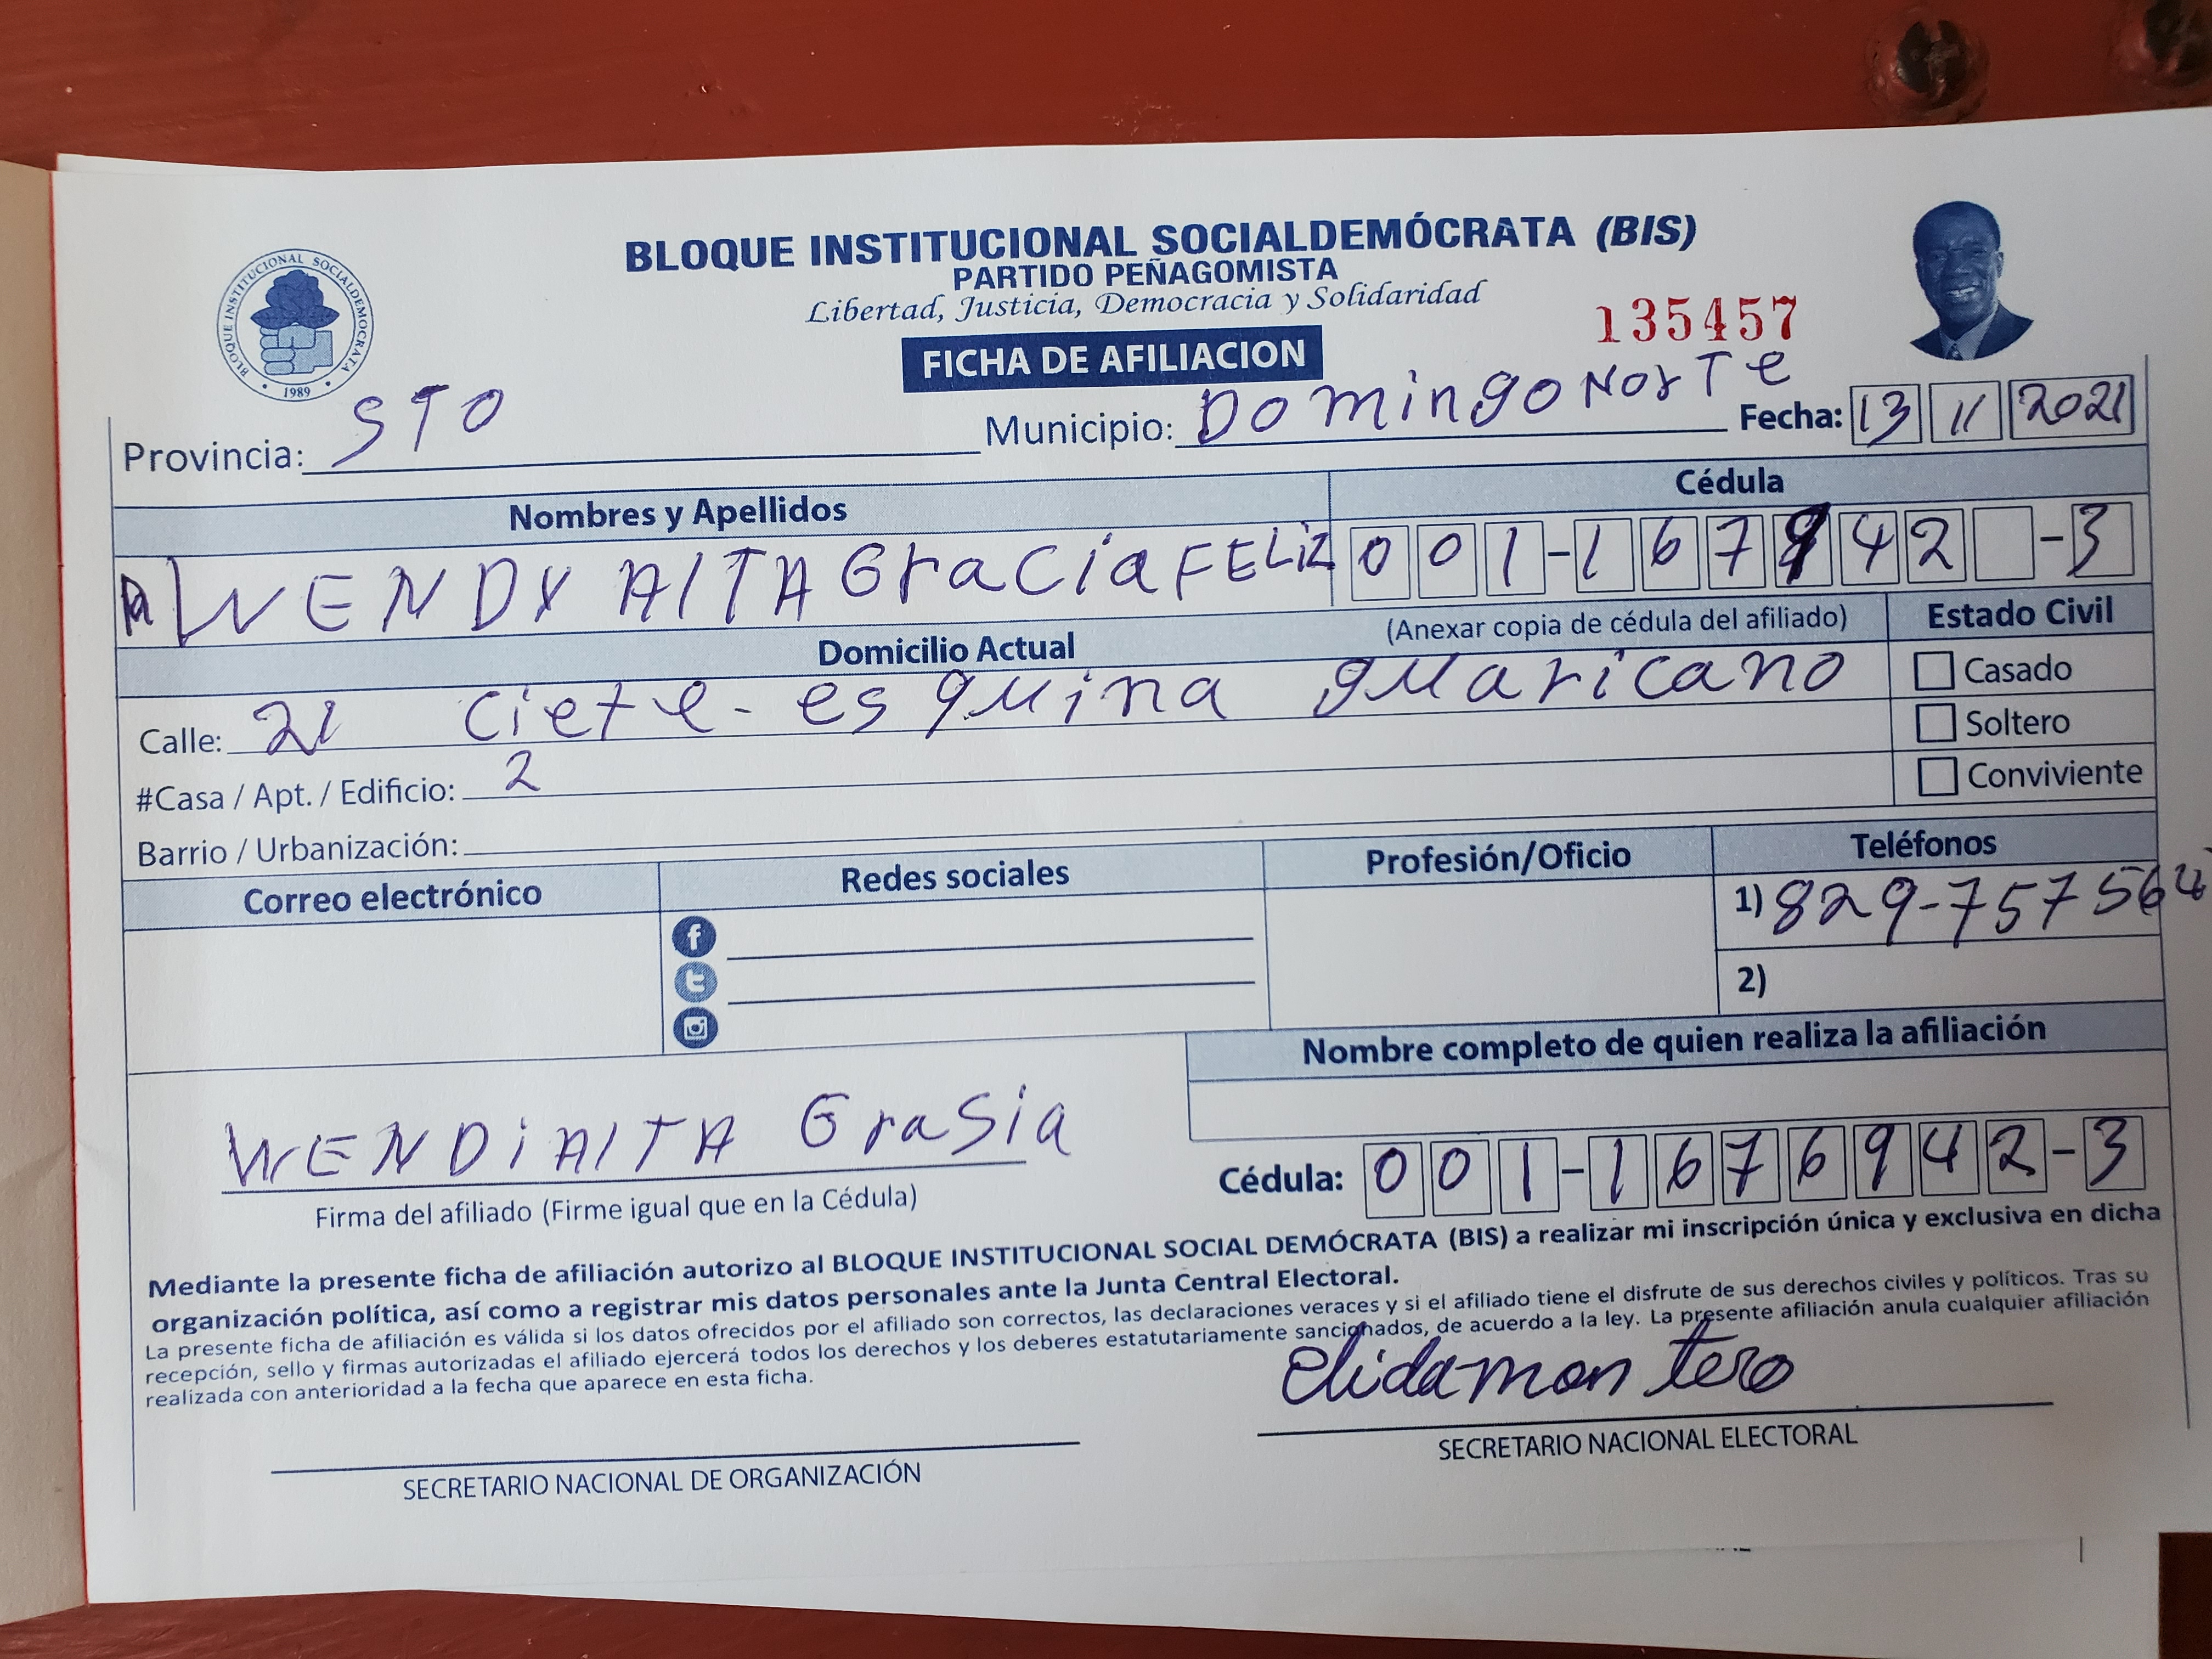 BLOQUE INSTITUCIONAL SOCIALDEMÓCRATA (BIS)
PARTIDO PEÑAGOMISTA
Libertad, Justicia, Democracia y Solidaridad
BLOQUE INSTITUCIONAL SOCIALDEMOCRATA
• 1989 •
135457
FICHA DE AFILIACION
Provincia: STO Municipio: DOmingo NorTe Fecha: 13 11 2021
Nombres y Apellidos Cédula
WENDY AlTAGraCia FELiZ 001-167 42 -3
Domicilio Actual (Anexar copia de cédula del afiliado) Estado Civil
Calle: 21 Ciete- esquina guaricano
Casado
Soltero
#Casa / Apt. / Edificio: 2
Conviviente
Barrio / Urbanización:
Correo electrónico Redes sociales Profesión/Oficio Teléfonos
1) 829-757
2)
Nombre completo de quien realiza la afiliación
WENDiAlTA GraSia
Cédula: 001-1676942-3
Firma del afiliado (Firme igual que en la Cédula)
Mediante la presente ficha de afiliación autorizo al BLOQUE INSTITUCIONAL SOCIAL DEMÓCRATA (BIS) a realizar mi inscripción única y exclusiva en dicha
organización política, así como a registrar mis datos personales ante la Junta Central Electoral.
La presente ficha de afiliación es válida si los datos ofrecidos por el afiliado son correctos, las declaraciones veraces y si el afiliado tiene el disfrute de sus derechos civiles y políticos. Tras su
recepción, sello y firmas autorizadas el afiliado ejercerá todos los derechos y los deberes estatutariamente sancionados, de acuerdo a la ley. La presente afiliación anula cualquier afiliación
realizada con anterioridad a la fecha que aparece en esta ficha.
elidamontero
SECRETARIO NACIONAL DE ORGANIZACIÓN SECRETARIO NACIONAL ELECTORAL